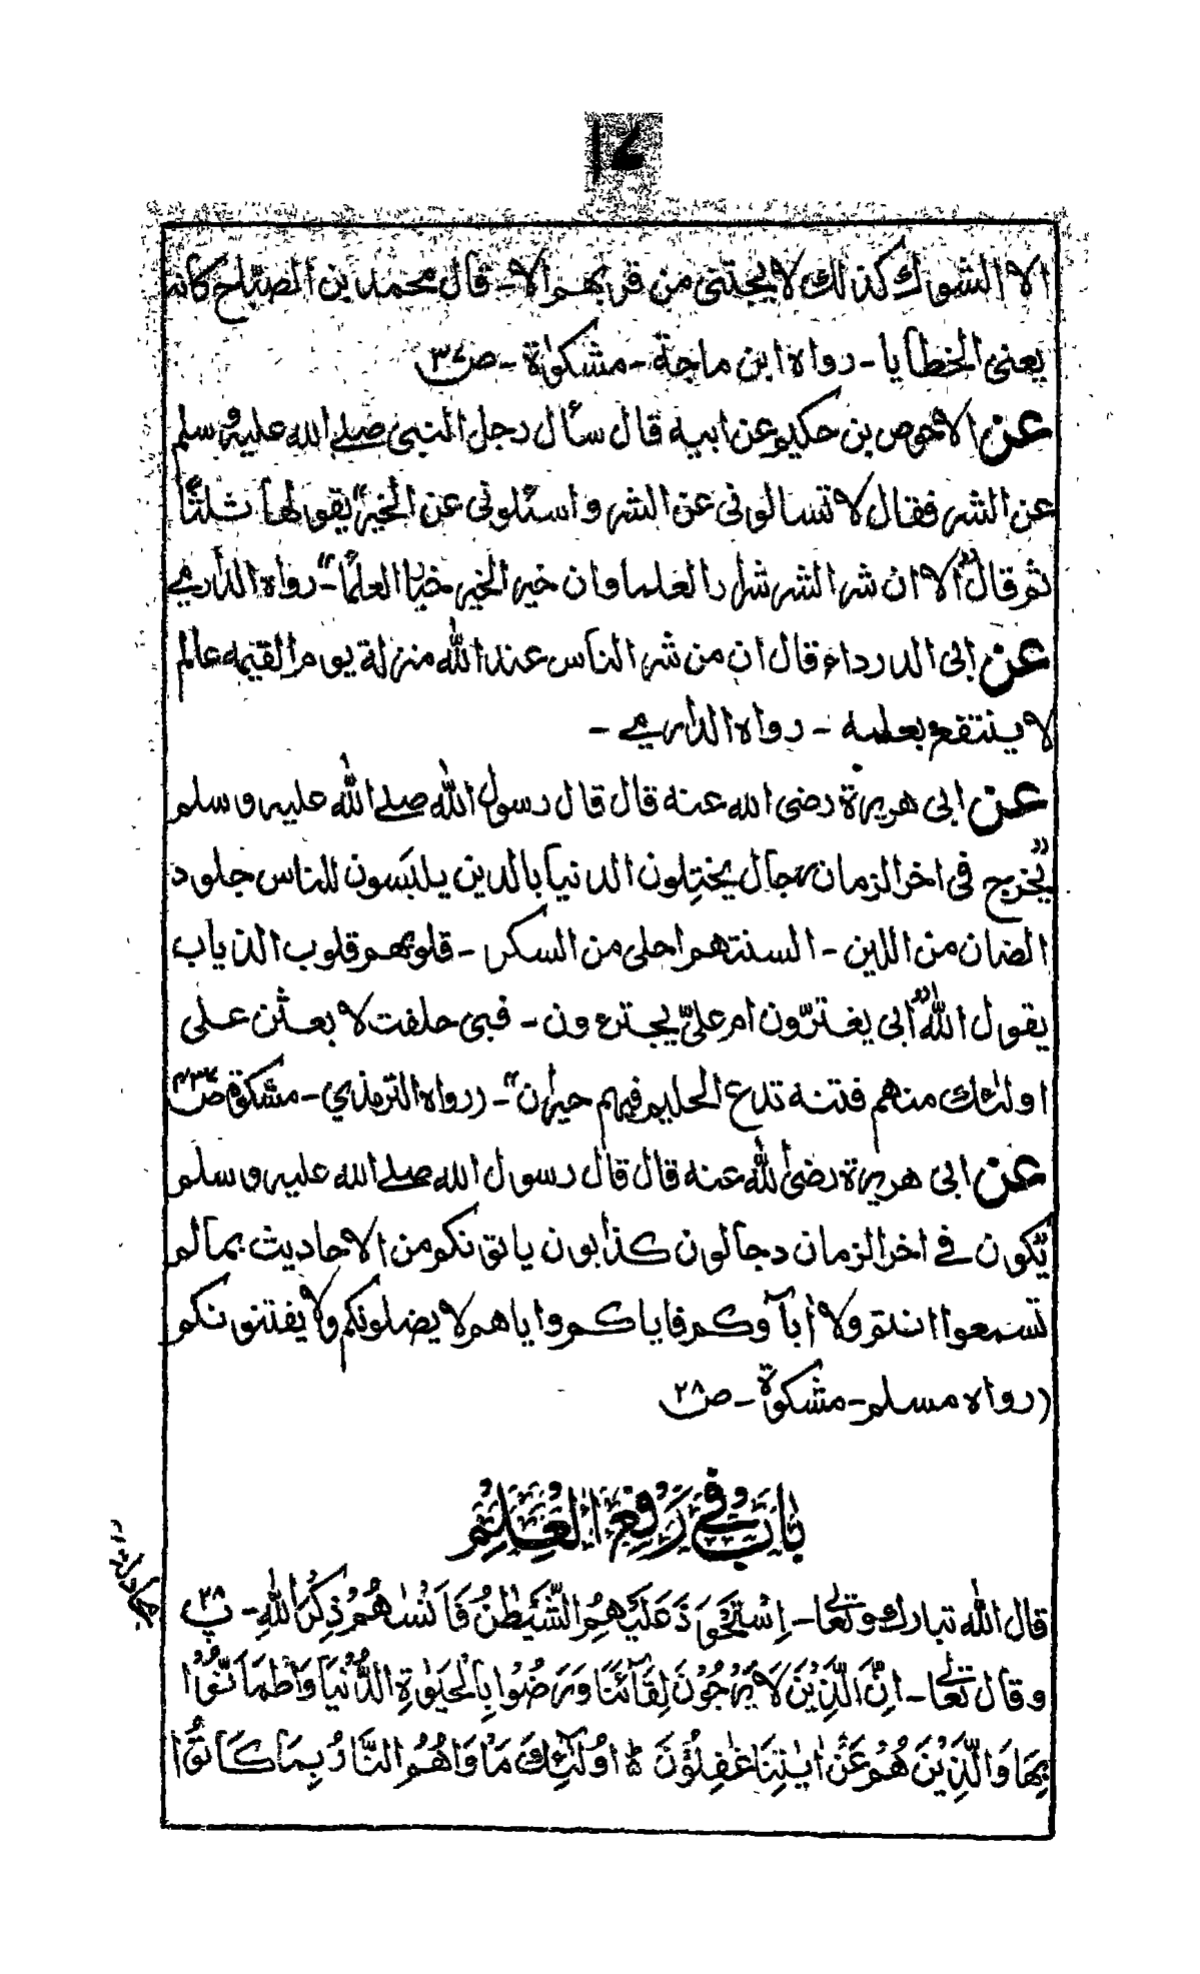 ١٧
الا الشوك كذلك لا يجتنى من قربهم الا - قال محمد بن الصباح كانه
يعنى الخطايا - رواه ابن ماجة - مشكوٰة - ص٣٧
عن الاحوص بن حكيم عن ابيه قال سأل رجل النبى صلے الله عليه وسلم
عن الشر فقال لا تسالونى عن الشر واسئلونى عن الخير" يقولها ثلثًا
ثم قال "الا ان شر الشر شرار العلما وان خير الخير خيار العلمأ" - رواه الدارمے
عن ابى الدرداء قال ان من شر الناس عند الله منزلة يوم القيٰمه عالم
لا ينتفع بعلمه - رواه الدارمے -
عن ابى هريرة رضى الله عنه قال قال رسول الله صلے الله عليه وسلم
"يخرج فى اخر الزمان رجال يختِلون الدنيا بالدين يلبَسون للناس جلود
الضان من اللين - السنتهم احلى من السكر - قلوبهم قلوب الذياب
يقول الله "أبى يغترّون ام علىّ يجترءون - فبى حلفت لا بعثن على
اولئك منهم فتنة تدع الحليم فيهم حيران" - (رواه الترمذي - مشكوة ص
عن ابى هريرة رضى الله عنه قال قال رسول الله صلے الله عليه وسلم
يكون فے اخر الزمان دجالون كذابون ياتونكم من الاحاديث بمالم
تسمعوا انتم ولا أبآؤكم فاياكم واياهم لا يضلونكم ولا يفتنونكم
(رواه مسلم - مشكوة - ص٢٨
بَابٌ فِي رَفْعِ الْعِلْمِ
قال الله تبارك وتعالٰے - اِسْتَحْوَذَ عَلَيْهِمُ الشَّيْطٰنُ فَاَنْسٰهُمْ ذِكْرَ اللهِ - پ٢٨
مجادلة
وقال تعالٰے - اِنَّ الَّذِيْنَ لَا يَرْجُوْنَ لِقَآئَنَا وَرَضُوْا بِالْحَيٰوةِ الدُّنْيَا وَاطْمَاَنُّوْا
بِهَا وَالَّذِيْنَ هُمْ عَنْ اٰيٰتِنَا غٰفِلُوْنَ ۵ اُولٰٓئِكَ مَاْوَاهُمُ النَّارُ بِمَا كَانُوْا